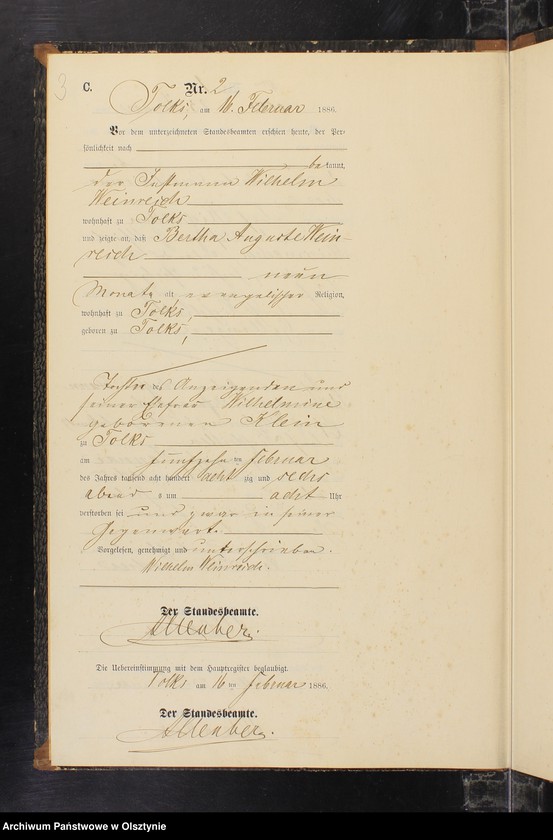 3
C.
Nr. 2
Tolks, am 16. Februar 1886.
Vor dem unterzeichneten Standesbeamten erschien heute, der Per-
sönlichkeit nach
be kannt,
der Instmann Wilhelm
Weinreich
wohnhaft zu Tolks
und zeigte an, daß Bertha Auguste Wein-
reich
neun
Monate alt, evangelischer Religion,
wohnhaft zu Tolks,
geboren zu Tolks,
Tochter des Anzeigenden und
seiner Ehefrau Wilhelmine
geborenen Klein
zu Tolks
am fünfzehnten Februar
des Jahres tausend acht hundert achtzig und sechs
abends um acht Uhr
verstorben sei und zwar in seiner
Gegenwart.
Vorgelesen, genehmigt und unterschrieben.
Wilhelm Weinreich.
Der Standesbeamte.
Die Uebereinstimmung mit dem Hauptregister beglaubigt.
Tolks am 16 ten Februar 1886.
Der Standesbeamte.
Archiwum Państwowe w Olsztynie